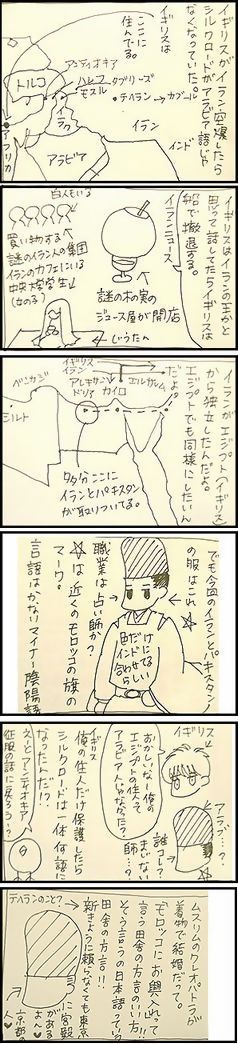 イギリスがイラン空爆したら
シルクロードがアラビア語じゃ
なくなっていた。
イギリスは
ここに
住んでる。
アンティオキア
トルコ
ハレフ タブリーズ
モスル
テヘラン→カブール
イラク
イラン
インド
アラビア
アフリカ
イギリスはイランの王かと
思って話してたらイギリスは
船で撤退する。
イランニュース
白人もいる
買い物する
謎のイラン人の集団
イランのカフェにいる
中央大学学生
(女の子)
謎の木の実の
ジュース屋が開店
じゅうたん
イランがエジプト(イギリス)
から独立したんだよ。
エジプトでも同様にしたいん
だよ。
イギリス
イラン
アレキサン エルサレム
ドリア カイロ
ベンガジ
シルト
多分ここに
イランとパキスタン
が取りついてる。
でも今回のイランとパキスタン
の服はこれ
職業は占い師か?
☆は近くのモロッコの旗の
マーク。
言語はかなりマイナー陰陽語
色だけ
インドに似てる
合わせらしい
イギリス
おかしいなー俺の
エジプトの住人って
アラビア人じゃなかった?
アラブ…?
誰コレ?
まじない
師…?
イギリス
俺の住人だけ保護したら
シルクロードは一体何語に
なったんだ!?
えーとアンティオキア
征服の話に戻ろう…?
ムスリムのクレオパトラが
着物で結婚だって。
モロッコにお輿入れって
言う田舎の方言のいい方!!
そう言うの日本語って
田舎の方言!!
新きょうに頼らなくても東京
テヘランのこと?
に宮殿
があるよん
京都の
人♥